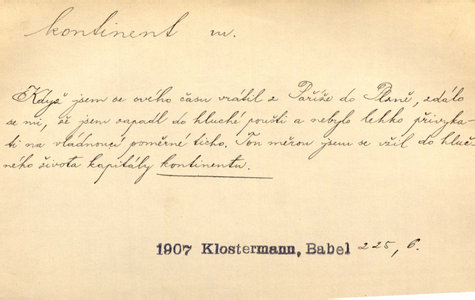 kontinent m.
Když jsem se svého času vrátil z Paříže do Plzně, zdálo
se mi, že jsem zapadl do hluché poušti a nebylo lehko přivyka-
ti na vládnoucí poměrné ticho. Tou měrou jsem se vžil do hluč-
ného života kapitály kontinentu.
1907 Klostermann, Babel 225, 6.